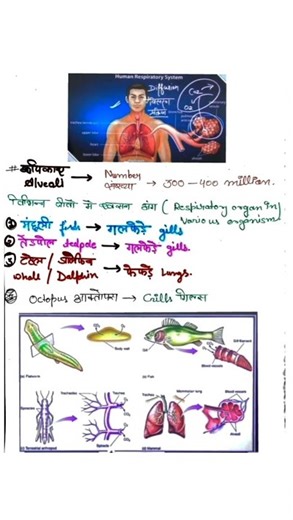 Human Respiratory System
Diffusion
CO₂
O₂
# कूपिकाए → Number
Alveoli संख्या → 300-400 million.
विभिन्न जीवो मे श्वसन अंग ( Respiratory organ in
Various organism)
मछली fish → गलफड़े gills
टेडपोल tadpole → गलफड़े gills.
व्हेल / डॉल्फिन → फेफड़े lungs.
whale / Dolphin
Octopus आक्टोपस → Gills गिल्स
Body wall
(a) Flatworm
Gill
Gill filament
Blood vessels
(b) Fish
Spiracles
Tracheoles
CO₂
O₂
Spiracle
(c) Terrestrial arthropod
Blood vessels
CO₂
O₂
Alveoli
(d) Mammal